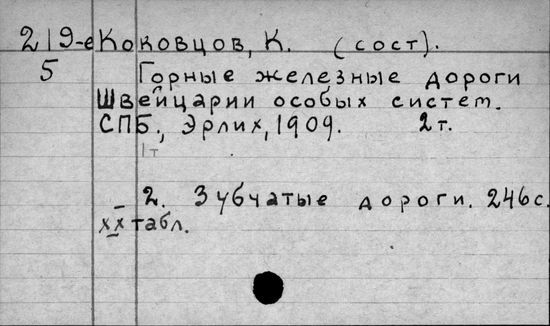 219-е Коковцов, К. (сост).
5 Горные железные дороги
Швейцарии особых систем.
СПБ., Эрлих, 1909. 2т.
1т
2. Зубчатые дороги. 246с.
xx табл.